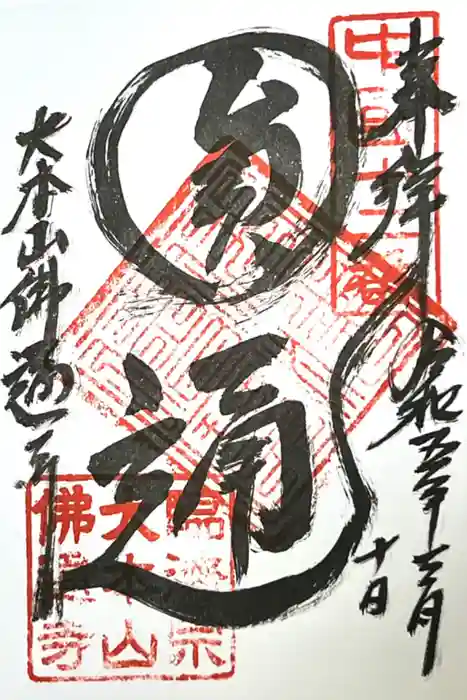 奉拝
令和五年十二月
十日
中国十二番
圓通
大本山佛通寺
臨済宗
大本山
佛通寺